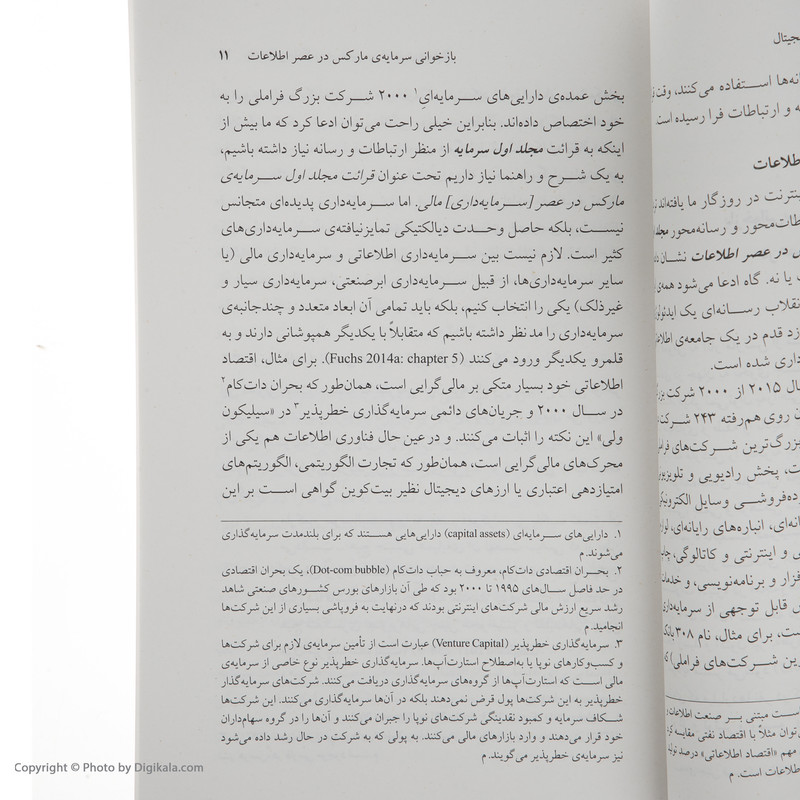 بازخوانی سرمایه‌ی مارکس در عصر اطلاعات ۱۱
بخش عمده‌ی دارایی‌های سرمایه‌ایِ۱ ۲۰۰۰ شرکت بزرگ فراملی را به
خود اختصاص داده‌اند. بنابراین خیلی راحت می‌توان ادعا کرد که ما بیش از
اینکه به قرائت مجلد اول سرمایه از منظر ارتباطات و رسانه نیاز داشته باشیم،
به یک شرح و راهنما نیاز داریم تحت عنوان قرائت مجلد اول سرمایه‌ی
مارکس در عصر [سرمایه‌داری] مالی. اما سرمایه‌داری پدیده‌ای متجانس
نیست، بلکه حاصل وحدت دیالکتیکی تمایزنیافته‌ی سرمایه‌داری‌های
کثیر است. لازم نیست بین سرمایه‌داری اطلاعاتی و سرمایه‌داری مالی (یا
سایر سرمایه‌داری‌ها، از قبیل سرمایه‌داری ابرصنعتی، سرمایه‌داری سیار و
غیرذلک) یکی را انتخاب کنیم، بلکه باید تمامی آن ابعاد متعدد و چندجانبه‌ی
سرمایه‌داری را مد نظر داشته باشیم که متقابلاً با یکدیگر همپوشانی دارند و به
قلمرو یکدیگر ورود می‌کنند (Fuchs 2014a: chapter 5). برای مثال، اقتصاد
اطلاعاتی خود بسیار متکی بر مالی‌گرایی است، همان‌طور که بحران دات‌کام۲
در سال ۲۰۰۰ و جریان‌های دائمی سرمایه‌گذاری خطرپذیر۳ در «سیلیکون
ولی» این نکته را اثبات می‌کنند. و در عین حال فناوری اطلاعات هم یکی از
محرک‌های مالی‌گرایی است، همان‌طور که تجارت الگوریتمی، الگوریتم‌های
امتیازدهی اعتباری یا ارزهای دیجیتال نظیر بیت‌کوین گواهی است بر این
۱. دارایی‌های سرمایه‌ای (capital assets) دارایی‌هایی هستند که برای بلندمدت سرمایه‌گذاری
می‌شوند. م
۲. بحران اقتصادی دات‌کام، معروف به حباب دات‌کام (Dot-com bubble)، یک بحران اقتصادی
در حد فاصل سال‌های ۱۹۹۵ تا ۲۰۰۰ بود که طی آن بازارهای بورس کشورهای صنعتی شاهد
رشد سریع ارزش مالی شرکت‌های اینترنتی بودند که درنهایت به فروپاشی بسیاری از این شرکت‌ها
انجامید. م
۳. سرمایه‌گذاری خطرپذیر (Venture Capital) عبارت است از تأمین سرمایه‌ی لازم برای شرکت‌ها
و کسب‌وکارهای نوپا یا به‌اصطلاح استارت‌آپ‌ها. سرمایه‌گذاری خطرپذیر نوع خاصی از سرمایه‌ی
مالی است که استارت‌آپ‌ها از گروه‌های سرمایه‌گذاری دریافت می‌کنند. شرکت‌های سرمایه‌گذار
خطرپذیر به این شرکت‌ها پول قرض نمی‌دهند بلکه در آن‌ها سرمایه‌گذاری می‌کنند. این شرکت‌ها
شکاف سرمایه و کمبود نقدینگی شرکت‌های نوپا را جبران می‌کنند و آن‌ها را در گروه سهام‌داران
خود قرار می‌دهند و وارد بازارهای مالی می‌کنند. به پولی که به شرکت در حال رشد داده می‌شود
نیز سرمایه‌ی خطرپذیر می‌گویند. م
استفاده می‌کنند، وقت
و ارتباطات فرا رسیده است
در روزگار ما یافته‌اند
و رسانه‌محور
در عصر اطلاعات نشان
یا نه. گاه ادعا می‌شود همه‌ی
رسانه‌ای یک
قدم در یک جامعه‌ی
شده است.
۲۰۱۵ از ۲۰۰۰ شرکت
روی هم‌رفته ۲۴۳
شرکت‌های
پخش رادیویی و
وسایل
انبارهای رایانه‌ای،
و اینترنتی و کاتالوگی،
و برنامه‌نویسی، و
قابل توجهی از
برای مثال، نام ۳۰۸
شرکت‌های فراملی)
مبتنی بر صنعت اطلاعات
مثلاً با اقتصاد نفتی مقایسه
مهم «اقتصاد اطلاعاتی» درصد
اطلاعات است. م
Copyright © Photo by Digikala.com